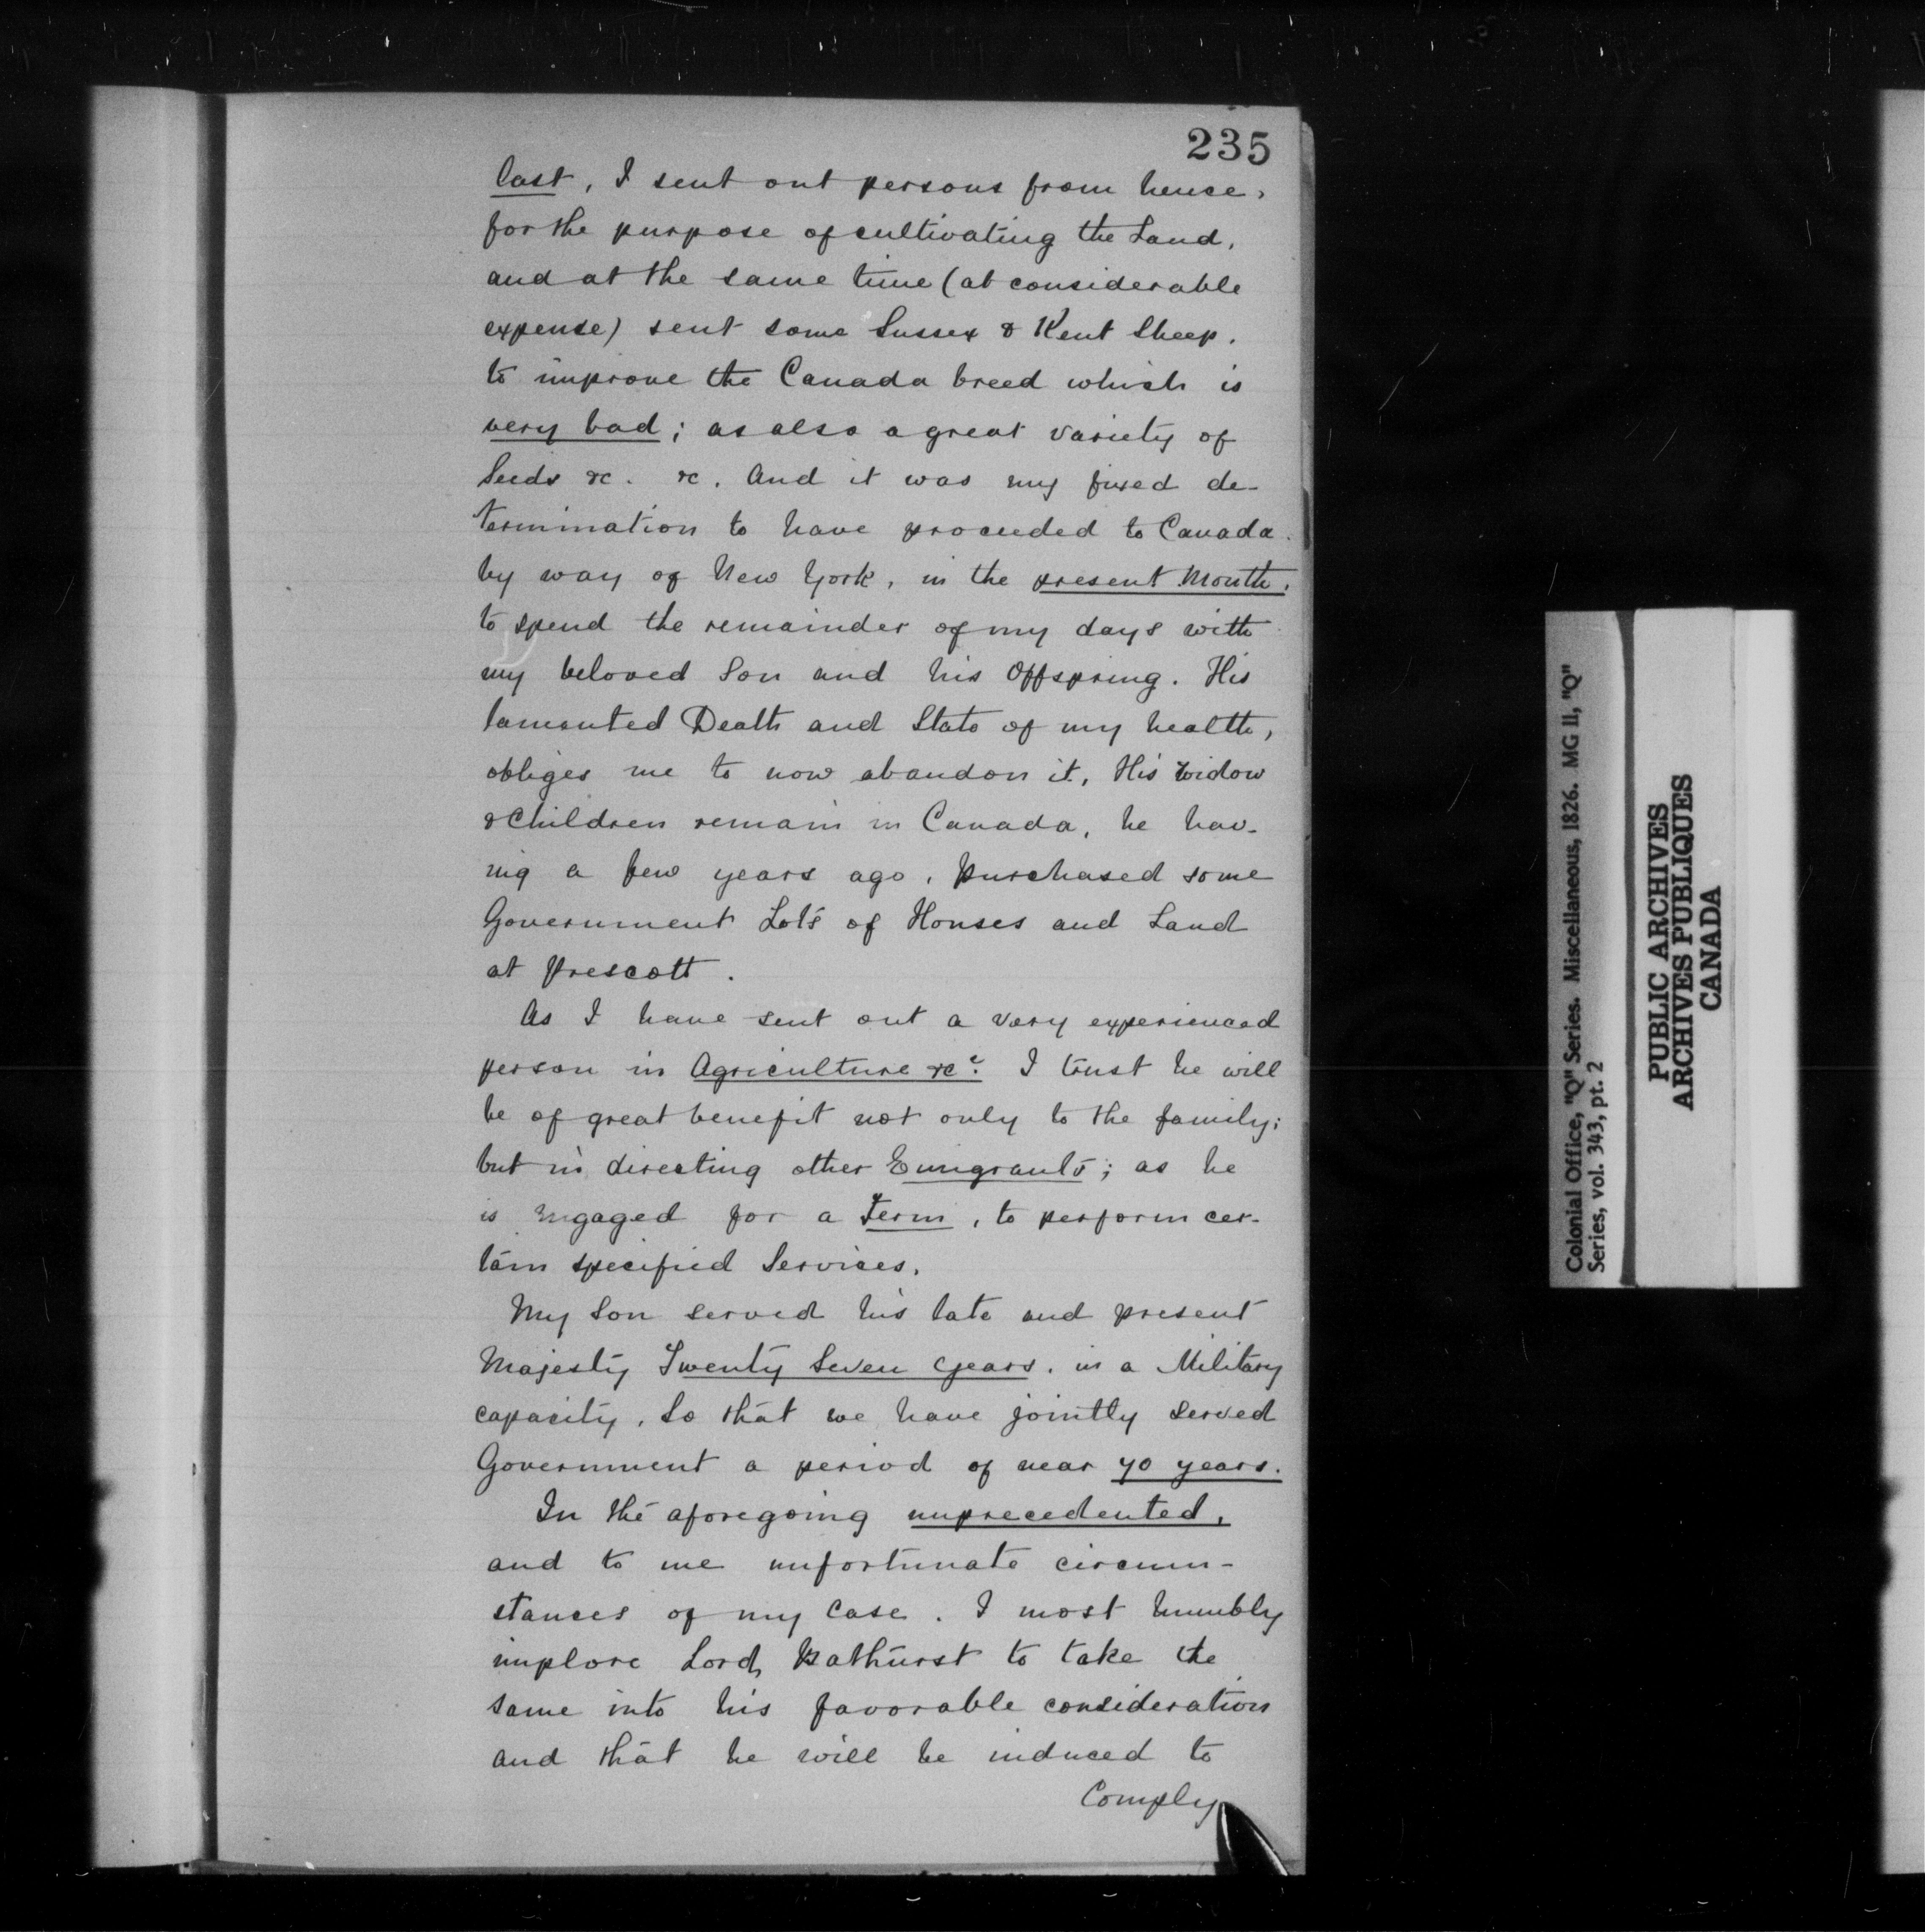 235
last, I sent out persons from hence,
for the purpose of cultivating the Land,
and at the same time (at considerable
expense) sent some Sussex & Kent Sheep,
to improve the Canada breed which is
very bad; as also a great variety of
Seeds &c. &c. And it was my fixed de-
termination to have proceeded to Canada
by way of New York, in the present Month,
to spend the remainder of my days with
my beloved Son and his Offspring. His
lamented Death and State of my health,
obliges me to now abandon it. His widow
& Children remain in Canada, he hav-
ing a few years ago, purchased some
Government Lots of Houses and Land
at Prescott.
As I have sent out a very experienced
person in Agriculture &c. I trust he will
be of great benefit not only to the family;
but in directing other Emigrants; as he
is engaged for a Term, to perform cer-
tain specified Services.
My Son served his late and present
Majesty Twenty Seven years, in a Military
capacity, So that we have jointly served
Government a period of near 70 years.
In the aforegoing unprecedented,
and to me unfortunate circum-
stances of my Case. I most humbly
implore Lord Bathurst to take the
same into his favorable consideration
and that he will be induced to
Comply
Colonial Office, "Q" Series. Miscellaneous, 1826. MG 11, "Q"
Series, vol. 343, pt. 2
PUBLIC ARCHIVES
ARCHIVES PUBLIQUES
CANADA